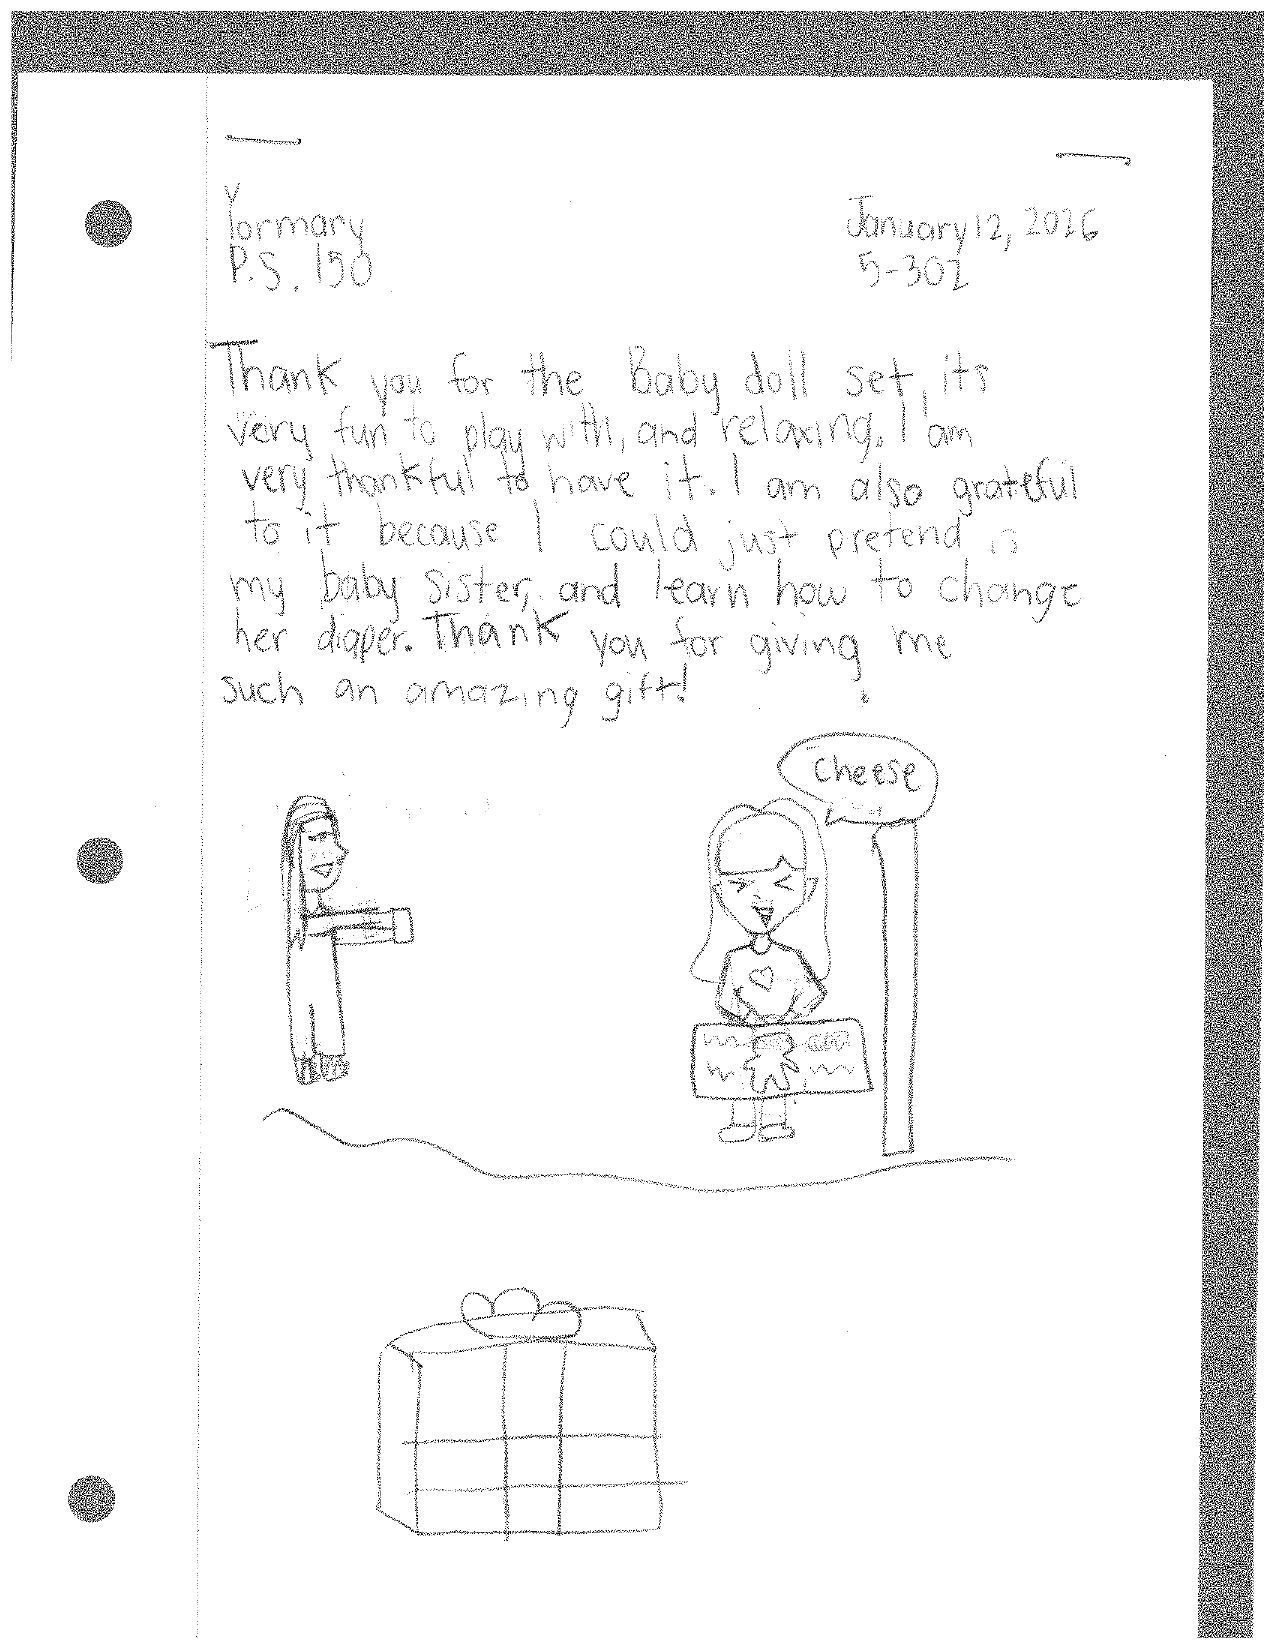 Yormary
January 12, 2026
P.S. 150
5-302
Thank you for the Baby doll set, its
very fun to play with, and relaxing. I am
very thankful to have it. I am also grateful
to it because I could just pretend is
my baby sister, and learn how to change
her diaper. Thank you for giving me
such an amazing gift!
Cheese